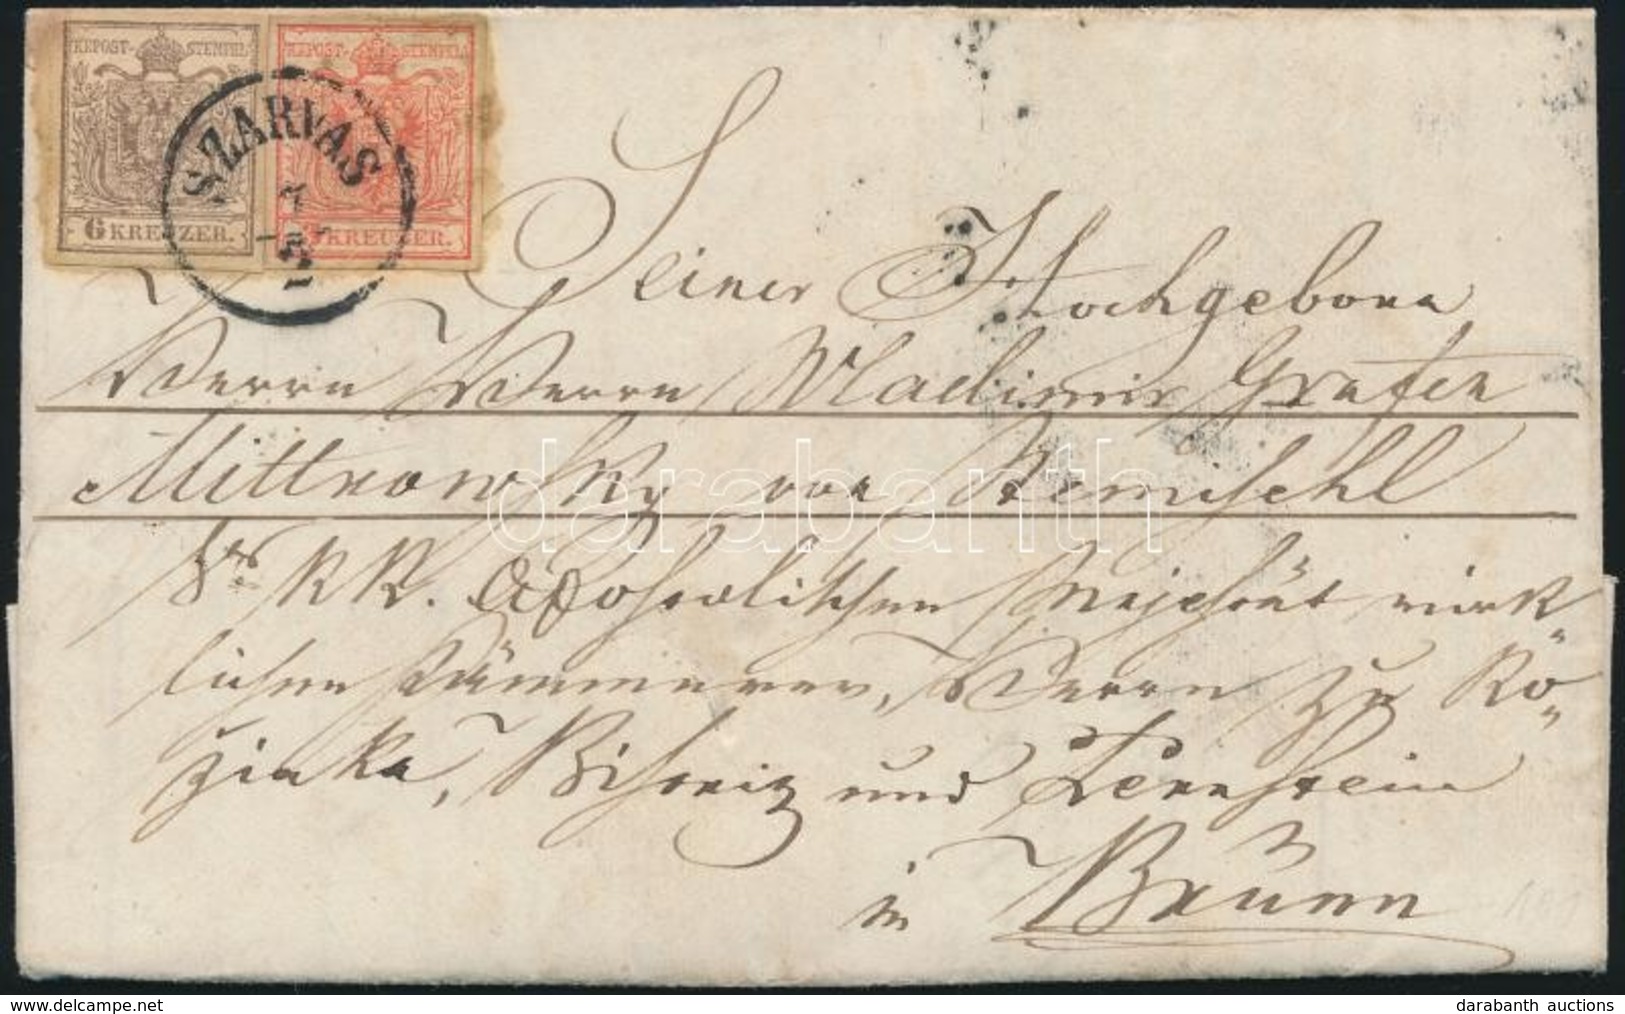 KKPOST-STEMPEL KKPOST-STEMPEL
6 KREUZER. 3 KREUZER.
SZARVAS
Seiner Hochgeborn
Herrn Herrn Wladimir Grafen
Mittrowsky von Nemischl
Sr KK. Apostolischen Majestät wirk-
lichen Kämmerer, Herrn zu Ro-
zinka, Bistritz und Pernstein
in Brünn
darabanth
www.delcampe.net
darabanth auctions